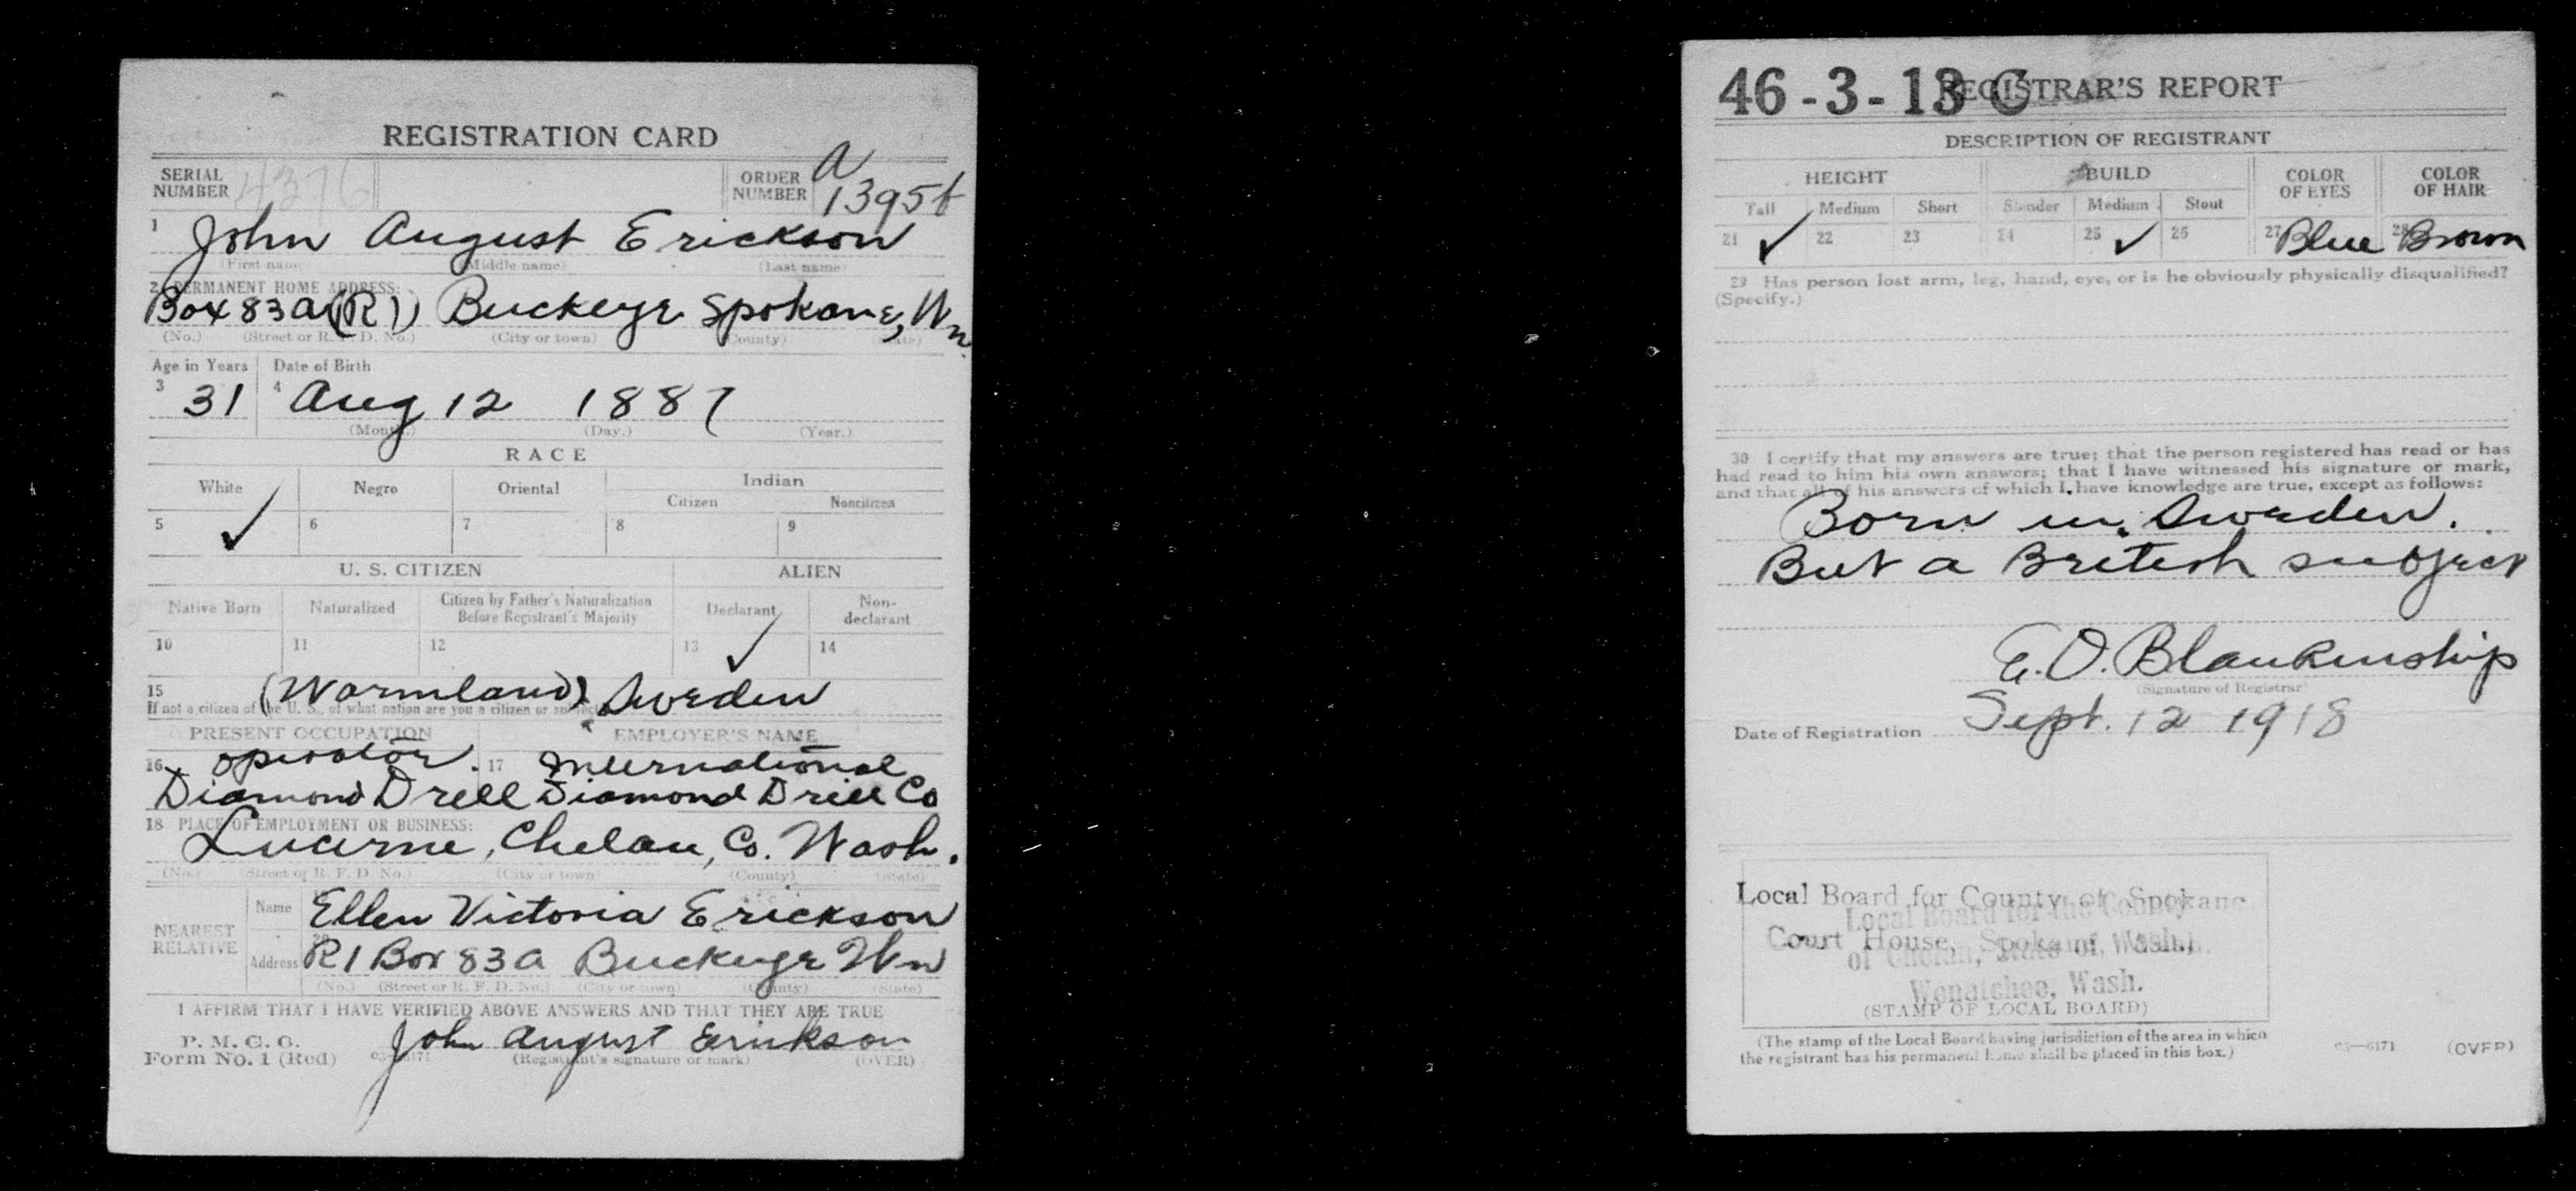 REGISTRATION CARD
SERIAL NUMBER 4376
ORDER NUMBER A 1395
1 John August Erickson
(First name) (Middle name) (Last name)
2 PERMANENT HOME ADDRESS:
Box 83a (R1) Buckeye Spokane, Wn.
(No.) (Street or R. F. D. No.) (City or town) (County) (State)
Age in Years Date of Birth
3 31 4 Aug 12 1887
(Month.) (Day.) (Year.)
RACE
White Negro Oriental Indian
Citizen Noncitizen
5 ✓ 6 7 8 9
U. S. CITIZEN ALIEN
Native Born Naturalized Citizen by Father's Naturalization Before Registrant's Majority Declarant Non-declarant
10 11 12 13 ✓ 14
15 (Warmland) Sweden
If not a citizen of the U. S., of what nation are you a citizen or subject?
PRESENT OCCUPATION EMPLOYER'S NAME
16 operator. 17 International
Diamond Drell Diamond Drill Co
18 PLACE OF EMPLOYMENT OR BUSINESS:
Lucerne, Chelan, Co. Wash.
(No.) (Street or R. F. D. No.) (City or town) (County) (State)
NEAREST RELATIVE
Name 19 Ellen Victoria Erickson
Address 20 R1 Box 83a Buckeye Wn
(No.) (Street or R. F. D. No.) (City or town) (County) (State)
I AFFIRM THAT I HAVE VERIFIED ABOVE ANSWERS AND THAT THEY ARE TRUE
P. M. G. O.
Form No. 1 (Red) 03—6171 John August Erickson
(Registrant's signature or mark) (OVER)
46-3-13 C
REGISTRAR'S REPORT
DESCRIPTION OF REGISTRANT
HEIGHT BUILD COLOR OF EYES COLOR OF HAIR
Tall Medium Short Slender Medium Stout
21 ✓ 22 23 24 25 ✓ 26 27 Blue 28 Brown
29 Has person lost arm, leg, hand, eye, or is he obviously physically disqualified?
(Specify.)
30 I certify that my answers are true; that the person registered has read or has
had read to him his own answers; that I have witnessed his signature or mark,
and that all of his answers of which I have knowledge are true, except as follows:
Born in Sweden.
But a British subject
E. O. Blankenship
(Signature of Registrar)
Date of Registration Sept. 12 1918
Local Board for County of Spokane
Local Board for the County
Court House, Spokane, Wash.
of Chelan, State of Wash.
Wenatchee, Wash.
(STAMP OF LOCAL BOARD)
(The stamp of the Local Board having jurisdiction of the area in which
the registrant has his permanent home shall be placed in this box.)
03—6171 (OVER)